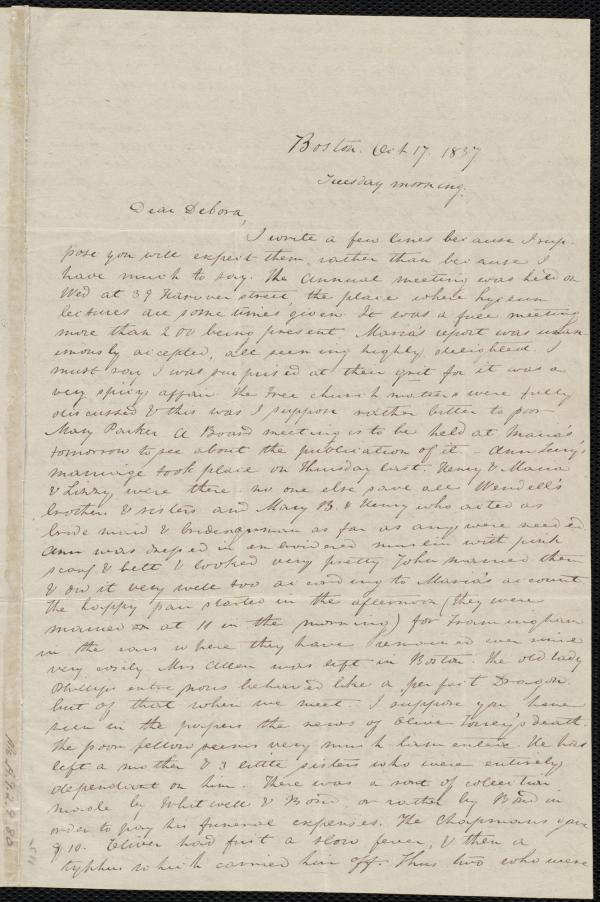 Boston. Oct. 17. 1837
Tuesday morning.
Dear Debora,
I write a few lines because I sup-
pose you will expect them, rather than because I
have much to say. The Annual meeting was held on
Wed at 39 Hanover street, the place where lyceum
lectures are some times given. It was a full meeting
more than 200 being present. Maria's report was unan
imously accepted, all seeming highly delighted. I
must say I was surprised at their grit for it was a
very spicy affair. The Free church matters were fully
discussed & this was I suppose rather bitter to poor
Mary Parker. A Board meeting is to be held at Maria's
tomorrow to see about the publication of it. Ann Terry's
marriage took place on Thursday last. Henry & Maria
& Lizzy were there. no one else save all Wendell's
brothers & sisters and Mary B. & Henry who acted as
bride maid & bridesgroomsman as far as any were needed.
Ann was dressed in embroidered muslin with pink
scarf & belt & looked very pretty. John married them
& did it very well too according to Maria's account.
The happy pair started in the afternoon (they were
married at 11 in the morning) for Framingham
in the cars where they have remained ever since
very cosily. Mrs Allen was left in Boston. The old lady
Phillips entre nous behaved like a perfect Dragon.
but of that when we meet. I suppose you have
seen in the papers the news of Oliver Torrey's death.
The poor fellow seems very much lamented. He has
left a mother & 3 little sisters who were entirely
dependant on him. There was a sort of collection
made by Whitwell & Bond, or rather by Bond in
order to pay his funeral expenses. The Chapmans gave
$10. Oliver had first a slow fever, & then a
typhus which carried him off. Thus two who were